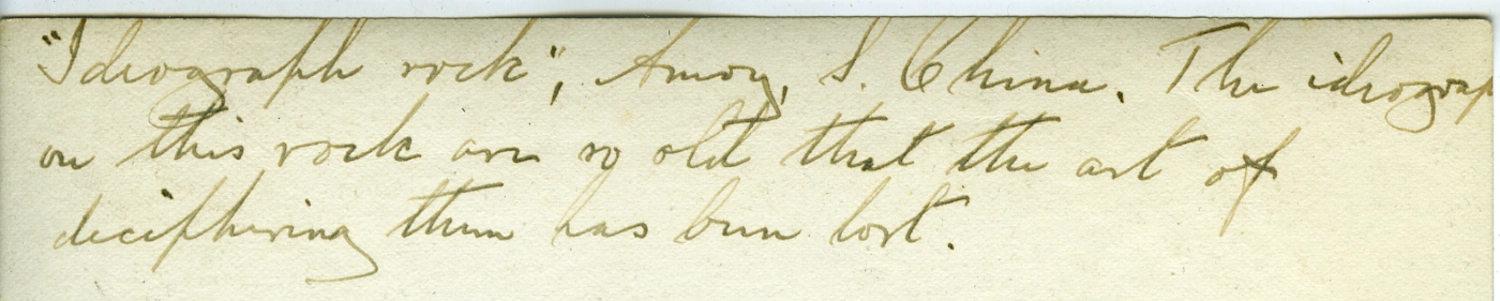 "Ideograph rock", Amoy, S. China. The ideograp
on this rock are so old that the art of
deciphering them has been lost.